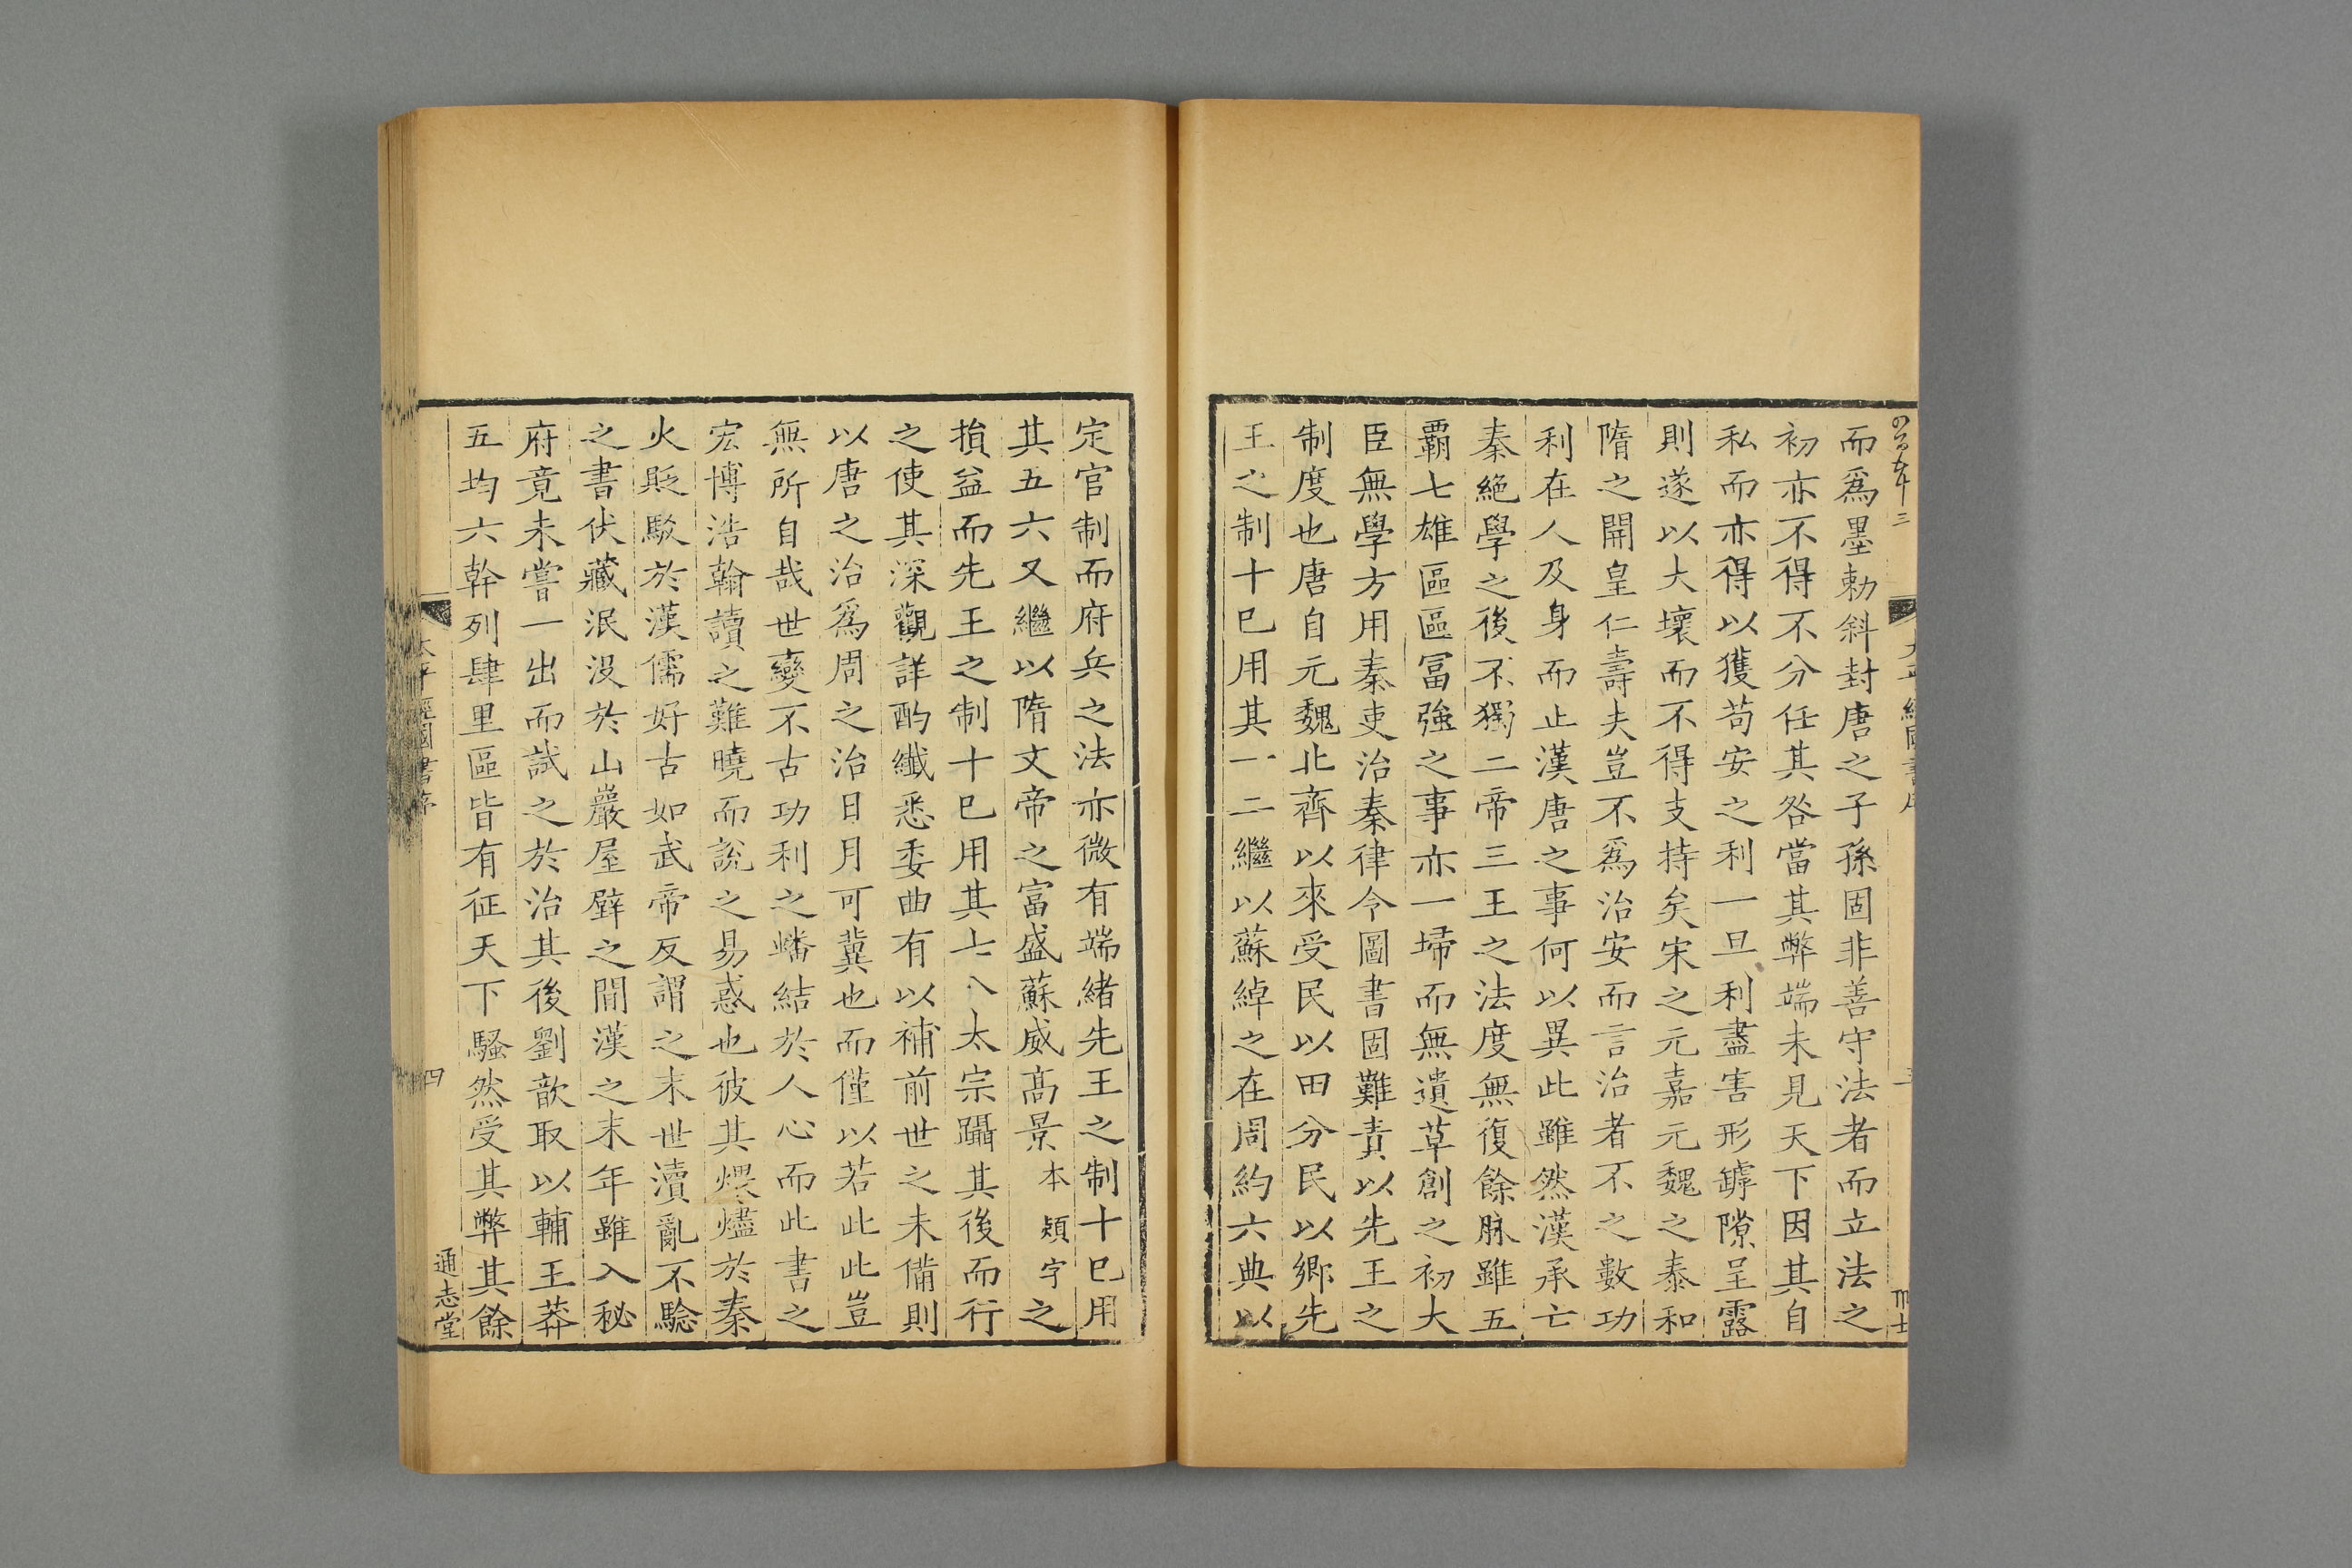 而爲墨勅斜封唐之子孫固非善守法者而立法之
初亦不得不分任其咎當其弊端未見天下因其自
私而亦得以獲苟安之利一旦利盡害形罅隙呈露
則遂以大壞而不得支持矣宋之元嘉元魏之泰和
隋之開皇仁壽夫豈不爲治安而言治者不之數功
利在人及身而止漢唐之事何以異此雖然漢承亡
秦絕學之後不獨二帝三王之法度無復餘脉雖五
覇七雄區區冨強之事亦一埽而無遺草創之初大
臣無學方用秦吏治秦律令圖書固難責以先王之
制度也唐自元魏北齊以來受民以田分民以鄉先
王之制十已用其一二繼以蘇綽之在周約六典以
定官制而府兵之法亦微有端緒先王之制十已用
其五六又繼以隋文帝之富盛蘇威高景本熲字之
損益而先王之制十已用其七八太宗躡其後而行
之使其深觀詳酌纖悉委曲有以補前世之未備則
以唐之治爲周之治日月可冀也而僅以若此此豈
無所自哉世變不古功利之蟠結於人心而此書之
宏博浩翰讀之難曉而說之易惑也彼其煨燼於秦
火貶駮於漢儒好古如武帝反謂之末世瀆亂不驗
之書伏藏泯沒於山巖屋壁之間漢之末年雖入秘
府竟未嘗一出而試之於治其後劉歆取以輔王莽
五均六幹列肆里區皆有征天下騷然受其弊其餘
太平經國書序
四
通志堂